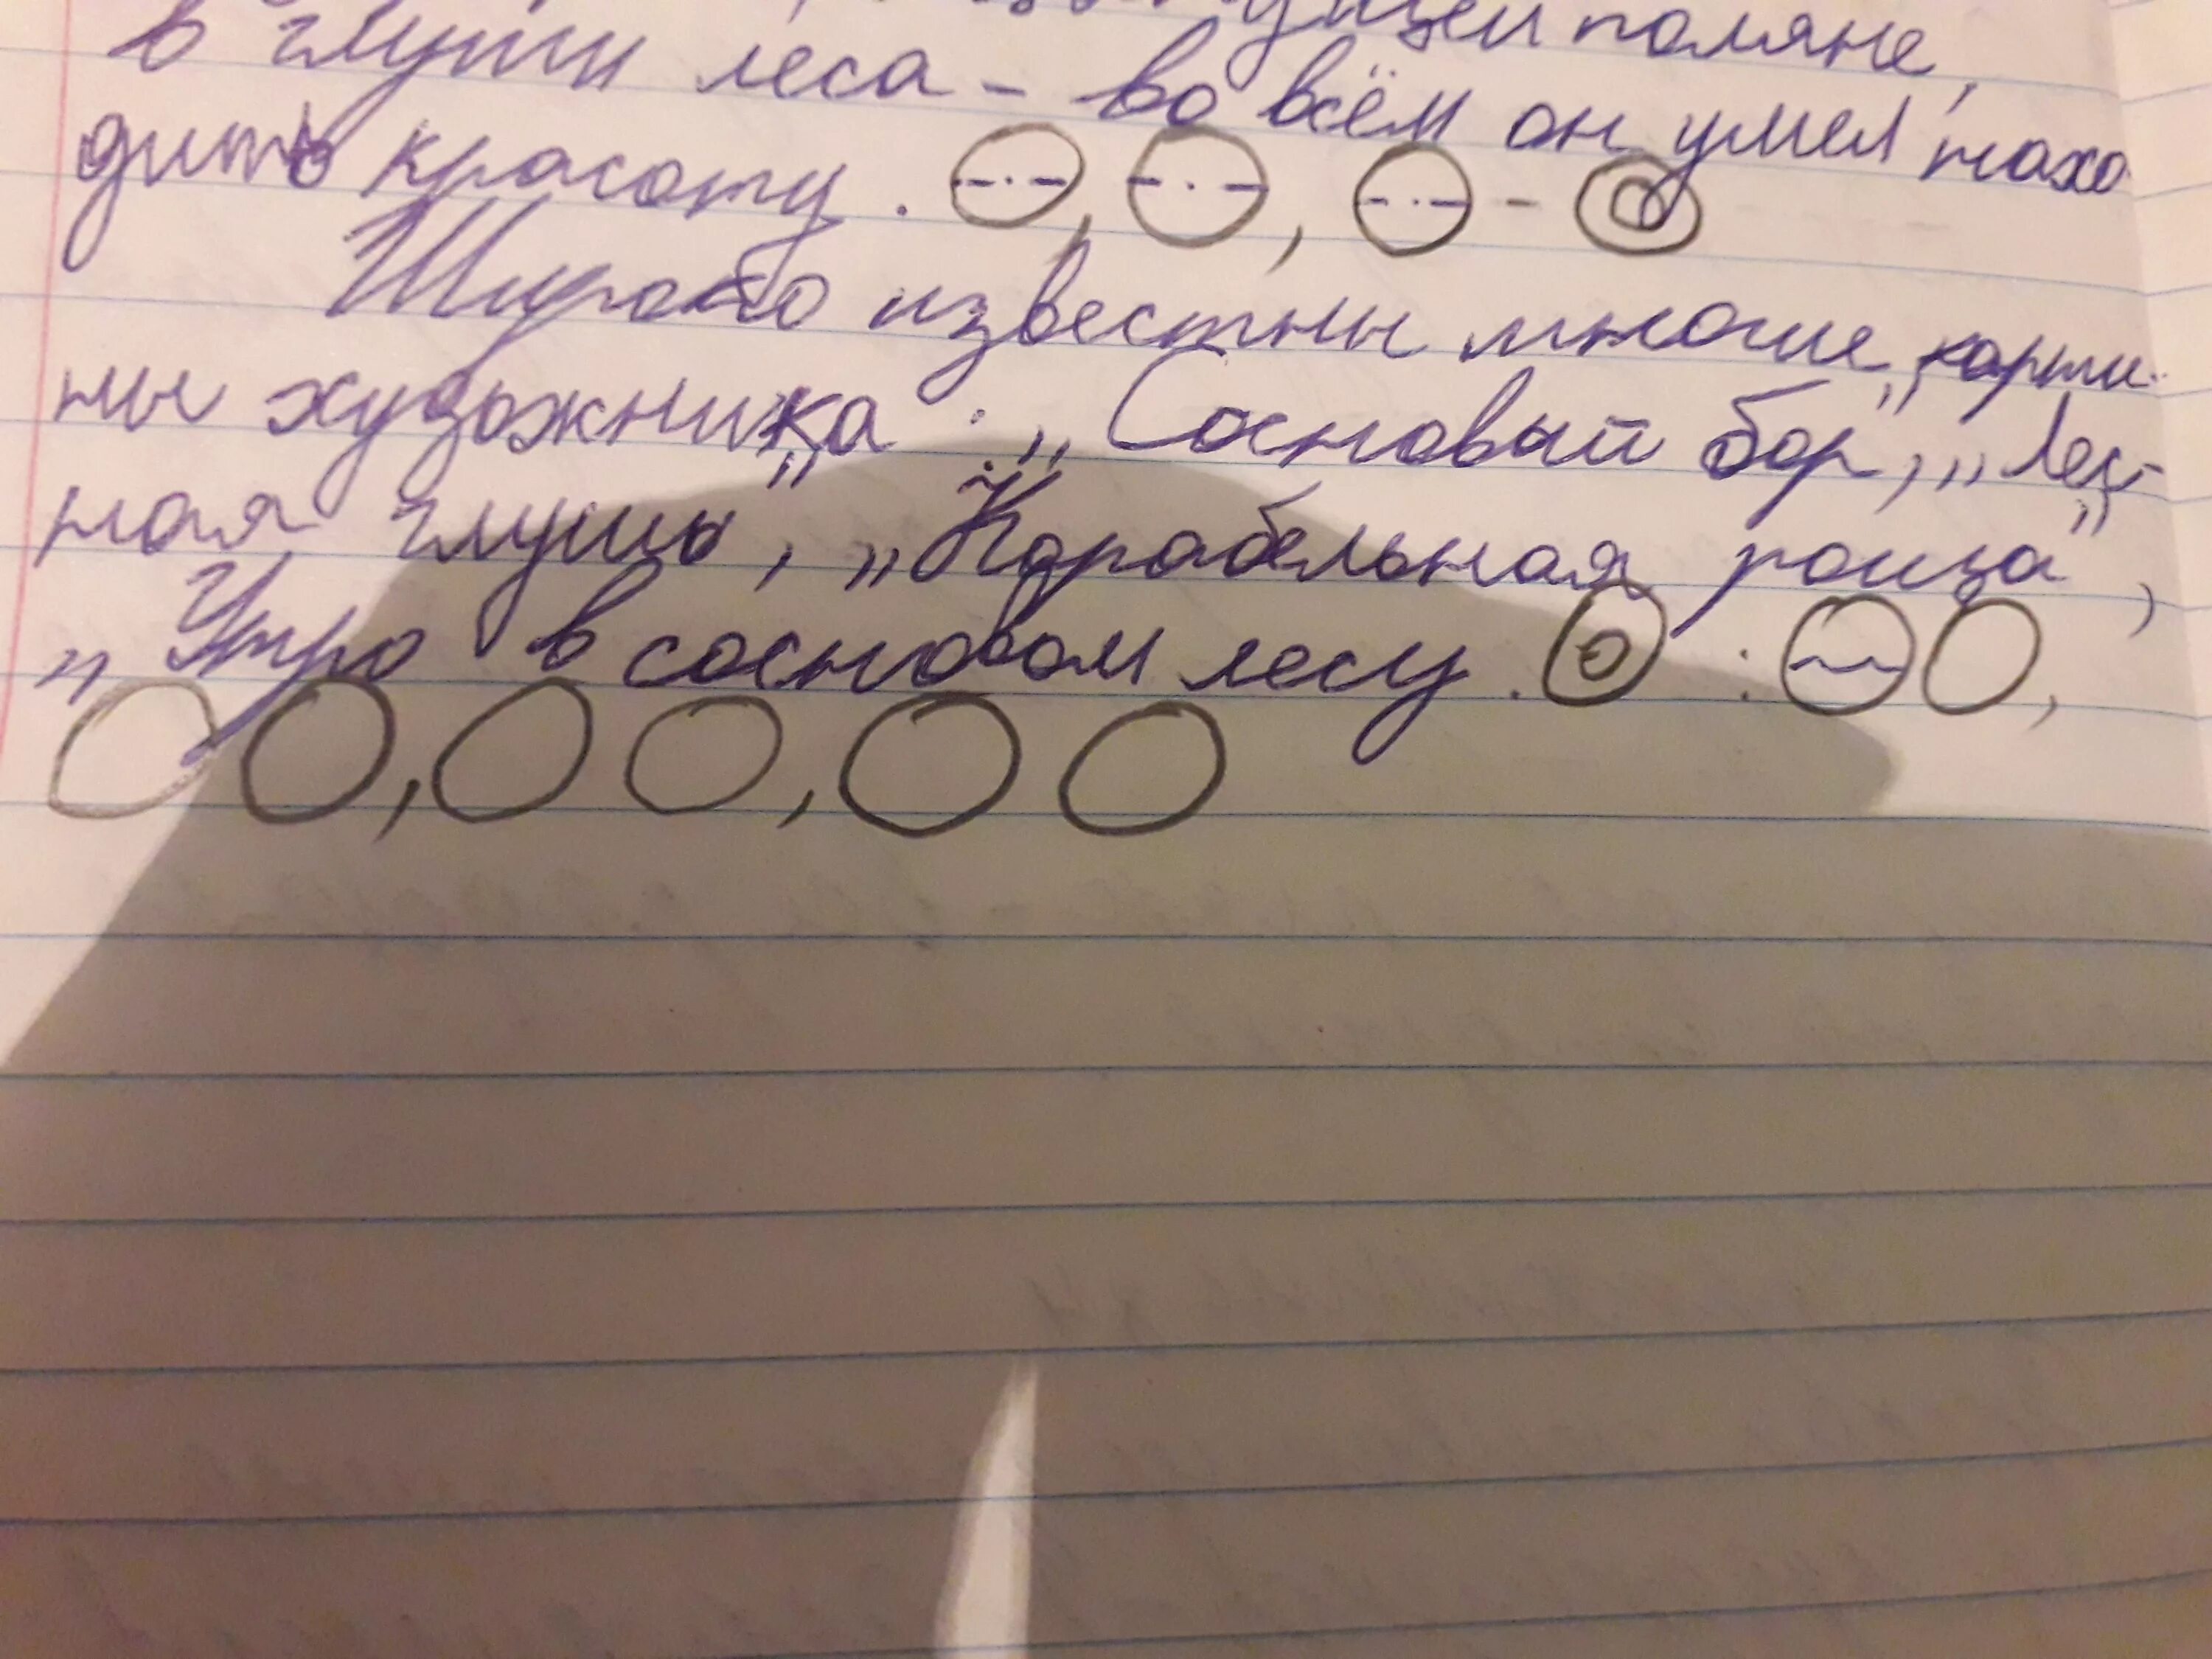 поляне,
в глуши леса – во всём он умел нахо
дить красоту.
Широко известны многие карти-
ны художника: „Сосновый бор", „Лес-
ная глушь", „Корабельная роща",
„Утро в сосновом лесу.